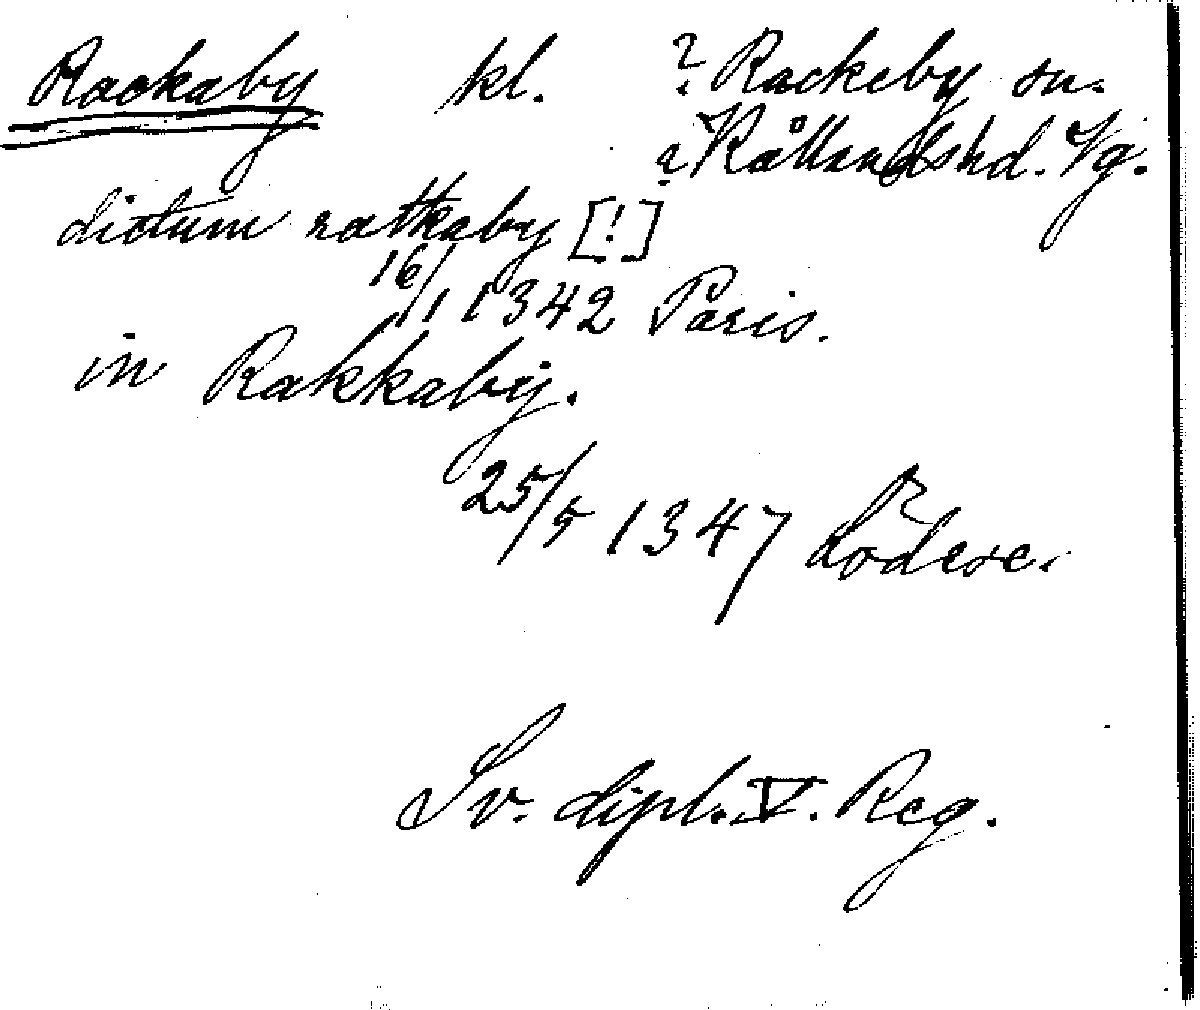 Rackaby kl. ? Rackeby sn.
? Kållandshd. Vg.
dictum ratkaby [!]
16/11 1342 Paris.
in Rakkaby.
25/5 1347 Lödese.
Sv. dipl. V. Reg.